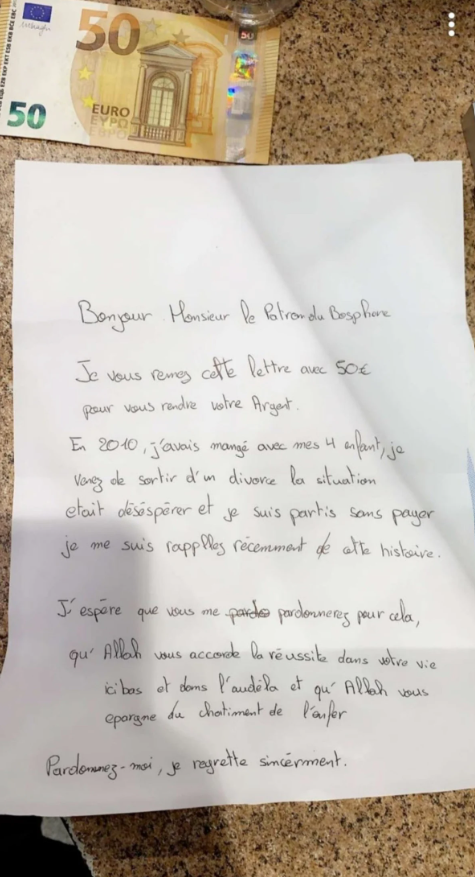 50
50
50
EURO
ΕΥΡΩ
Bonjour Monsieur le Patron du Bosphore
Je vous remez cette lettre avec 50€
pour vous rendre votre Argent.
En 2010, j'avais mangé avec mes 4 enfant, je
venez de sortir d'un divorce la situation
etait désésperer et je suis partis sans payer
je me suis rappllez récemment de cette histoire.
J'espère que vous me pardo pardonnerez pour cela,
qu'Allah vous accorde la réussite dans votre vie
ici bas et dans l'audéla et qu'Allah vous
epargne du chatiment de l'enfer
Pardonnez-moi, je regrette sincérment.